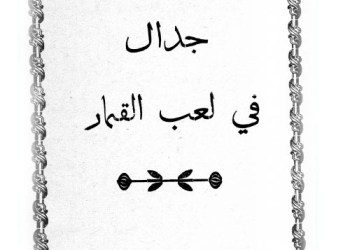 جدال
في لعب القمار